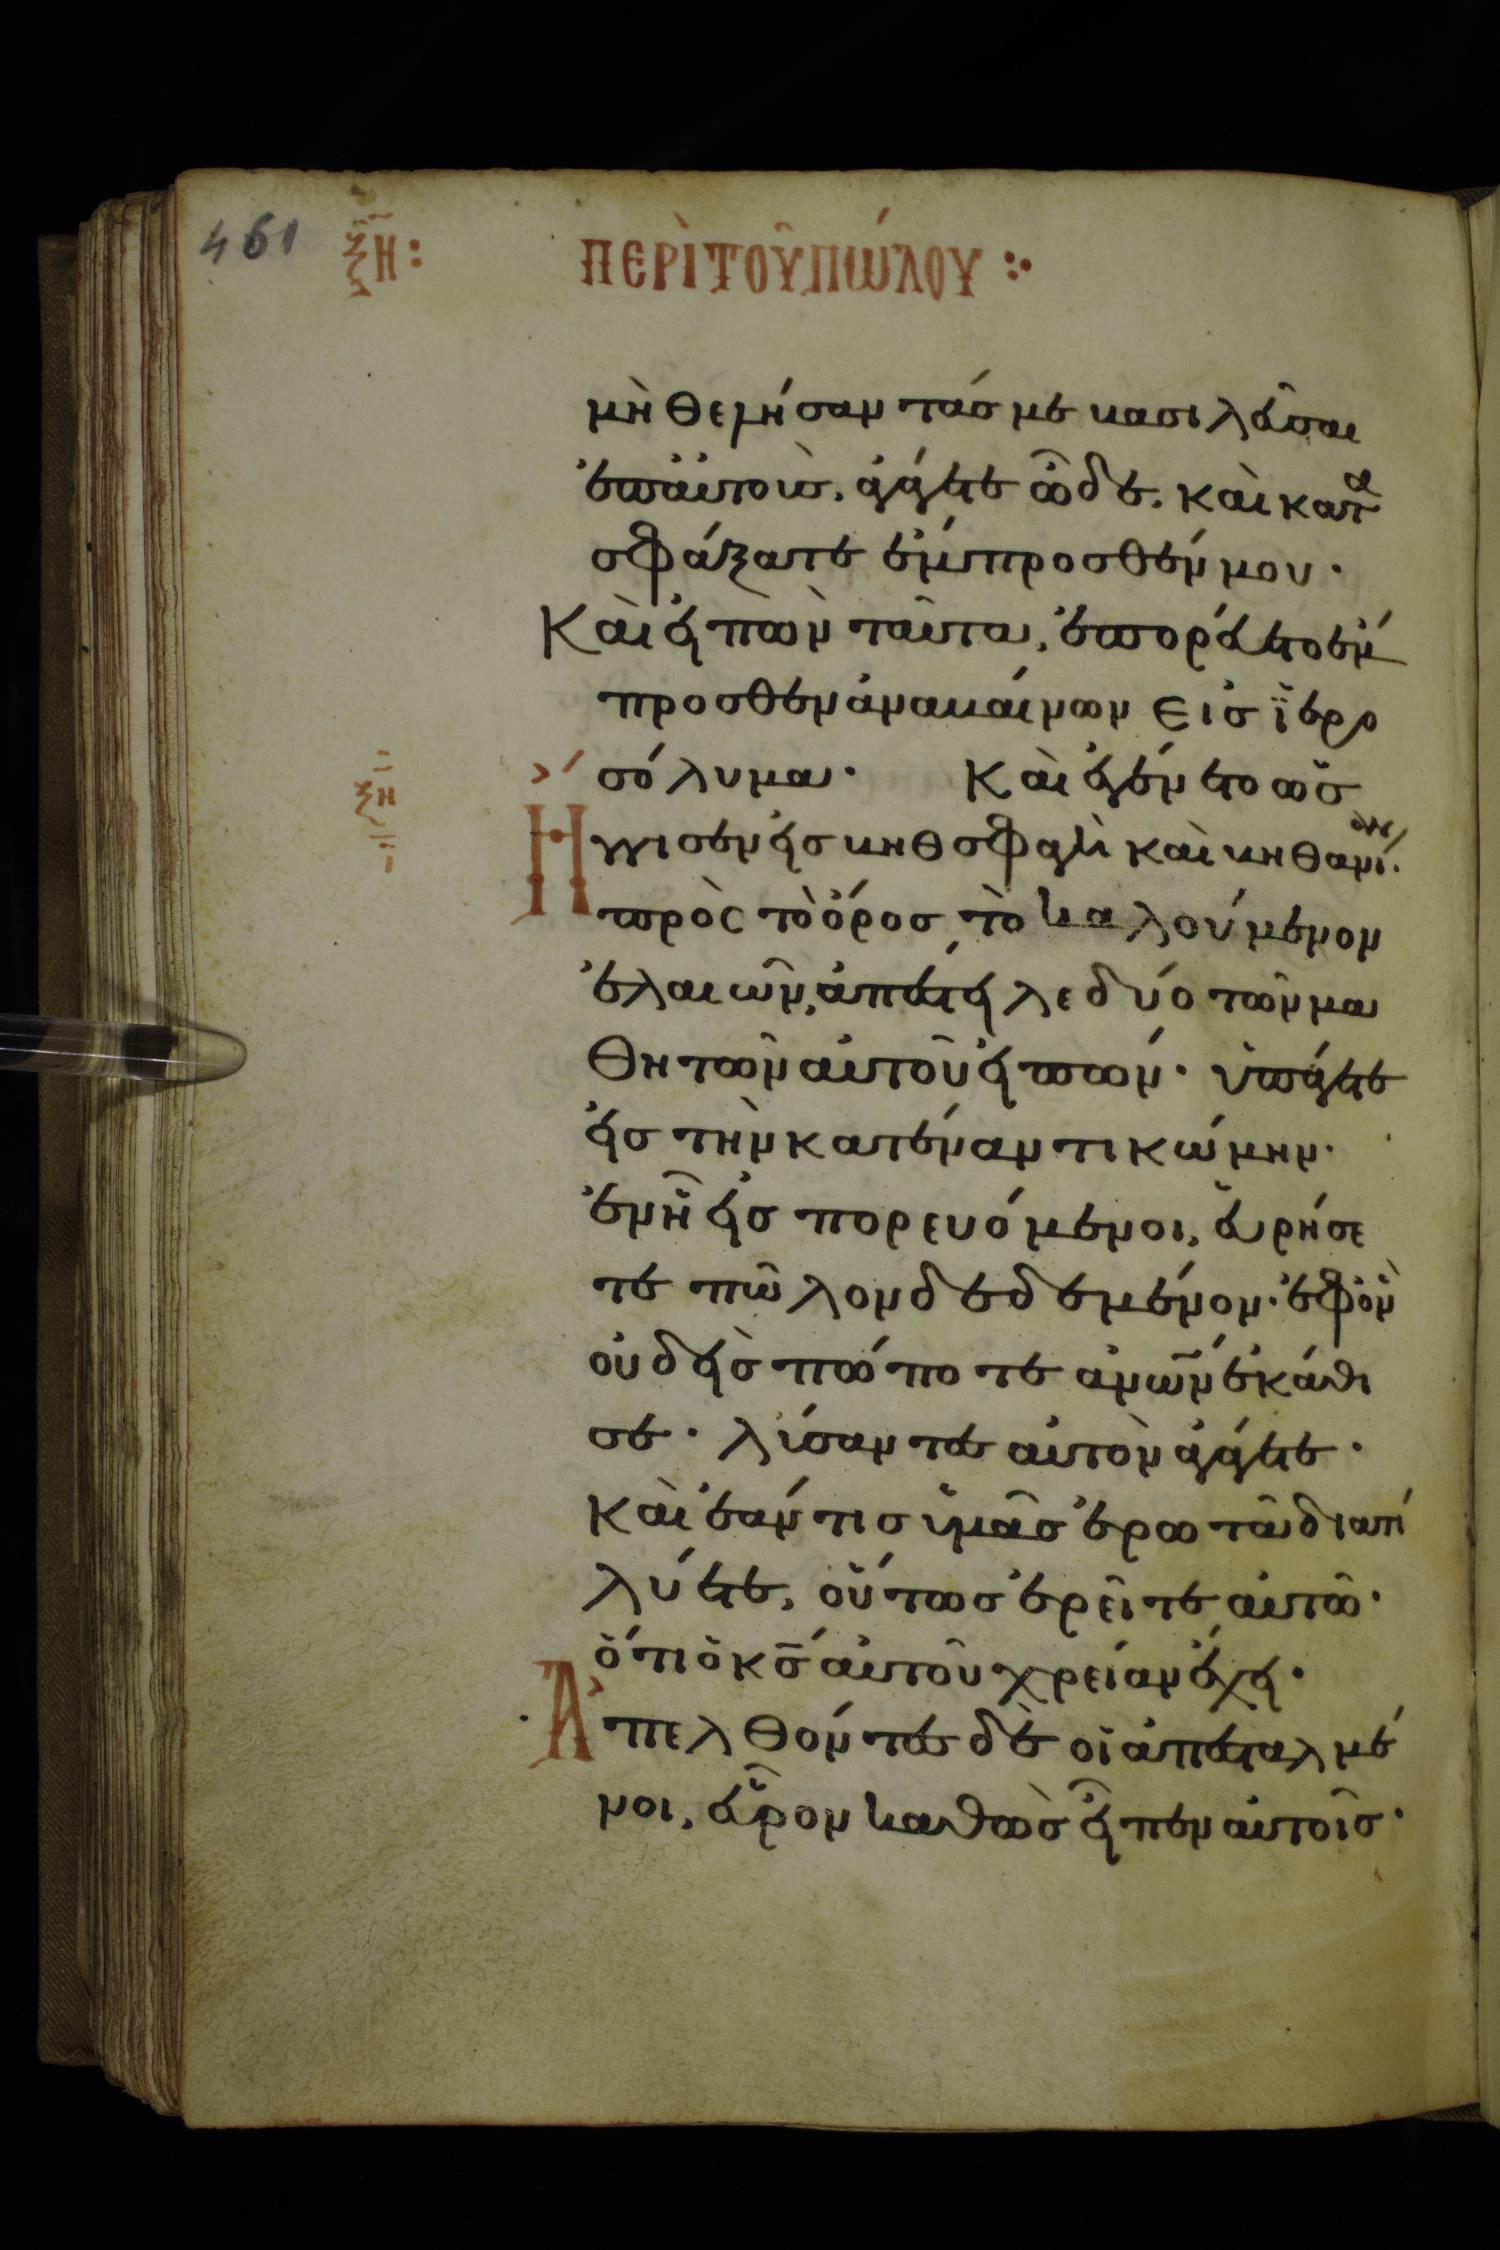 461 ξη: ΠΕΡῚ ΤΟΥ͂ ΠΏΛΟΥ
μὴ θελήσαντάς με βασιλεῦσαι
ἐπ' αὐτοὺς. ἀγάγετε ὧδε. καὶ κατα
σφάξατε ἔμπροσθέν μου·
Καὶ εἰπὼν ταῦτα, ἐπορεύετο ἔμ
προσθεν ἀναβαίνων εἰς ϊερο
σόλυμα· Καὶ ἐγένετο ὡς
ξη
Ηγγισεν εἰς βηθσφαγὶ καὶ βηθανί αν
πρὸς τὸ ὄρος τὸ καλούμενον
ἐλαιῶν, ἀπέστειλε δύο τῶν μα
θητῶν αὐτοῦ εἰπών· ὑπάγετε
εἰς τὴν κατέναντι κώμην·
ἐν ᾗ εἰσπορευόμενοι, εὑρήσε
τε πῶλον δεδεμένον· ἐφ' ὃν
οὐδεὶς πώποτε ἀνων ἐκάθι
σε· λύσαντες αὐτὸν ἀγάγετε·
καὶ ἐάν τις ὑμᾶς ἐρωτᾶ διατί
λύετε, οὕτως ἐρεῖτε αὐτῶ·
ὅτι ὁ κς αὐτοῦ χρείαν ἔχει·
Ἀπελθόντες δὲ οἱ ἀπεσταλμέ
νοι, εὗρον καθὼς εἶπεν αὐτοῖς·